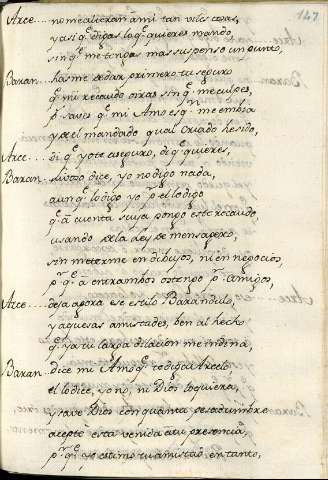 147
Arze.... no me alteran a mi tan viles cosas,
y asi q.e digas lo q.e quieres mando,
sin q.e me tengas mas suspenso un punto,
Baran. hasme de dar primero tu seguro
q.e mi recaudo oiras sin q.e me culpes,
p.s saves q.e mi Amo es q.n me embia
y q.e el mandado qual criado he sido,
Arze... di q.e yo te aseguro, di q.e quieres,
Baran. dice, yo no digo nada,
aunq.e lo digo yo p.r el lo digo
q.e a cuenta suya pongo este recaudo,
usando de la Ley de mensagero,
sin meterme en dibujos, ni en negocios,
p.r q.e a entrambos os tengo p.r Amigos,
Arze.... deja agora ese estilo Barandulo,
y aquesas amistades, ben al hecho
q.e ya tu larga dilacion me indina,
Baran. dice mi Amo q.e
el lo dice, yo no, ni Dios lo quiera,
y save Dios con quanta pesadumbre
acepte esta venida a tu presencia,
p.r q.e yo estimo tu amistad en tanto,